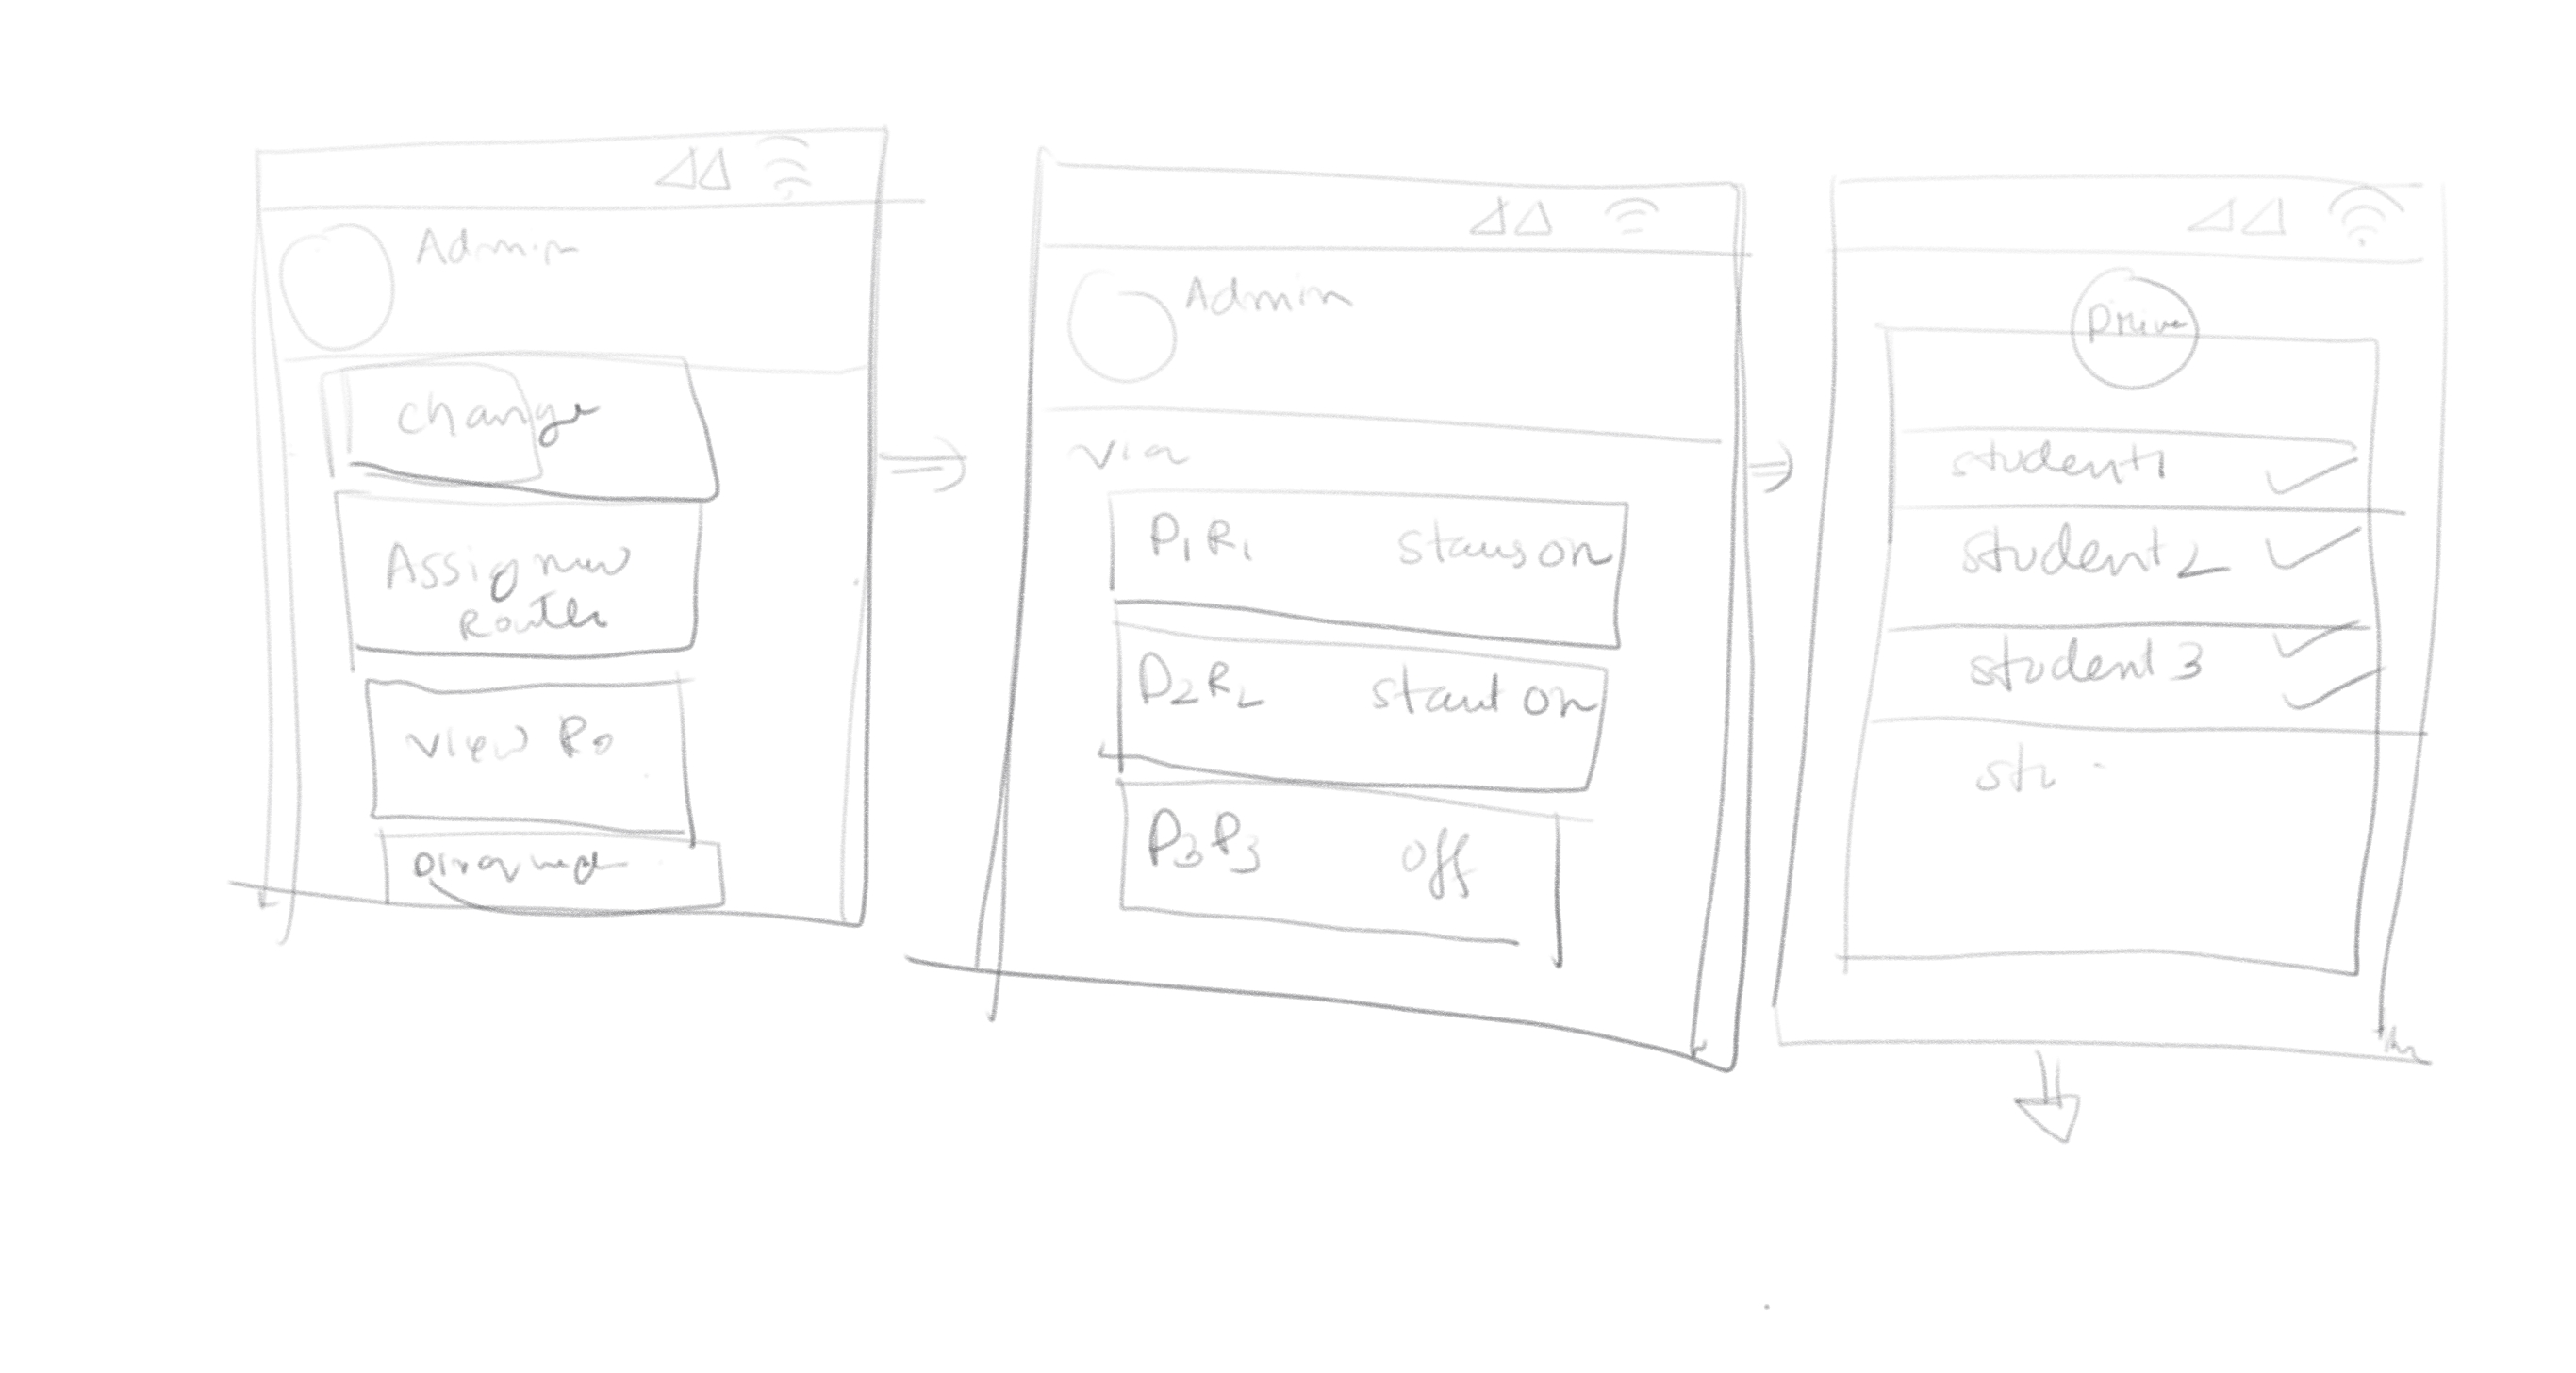 Admin
Change
Assig new
Router
view Ro
Admin
via
P1R1 staus on
D2R2 staut on
P3P3 off
Drive
student1
student2
student3
stu